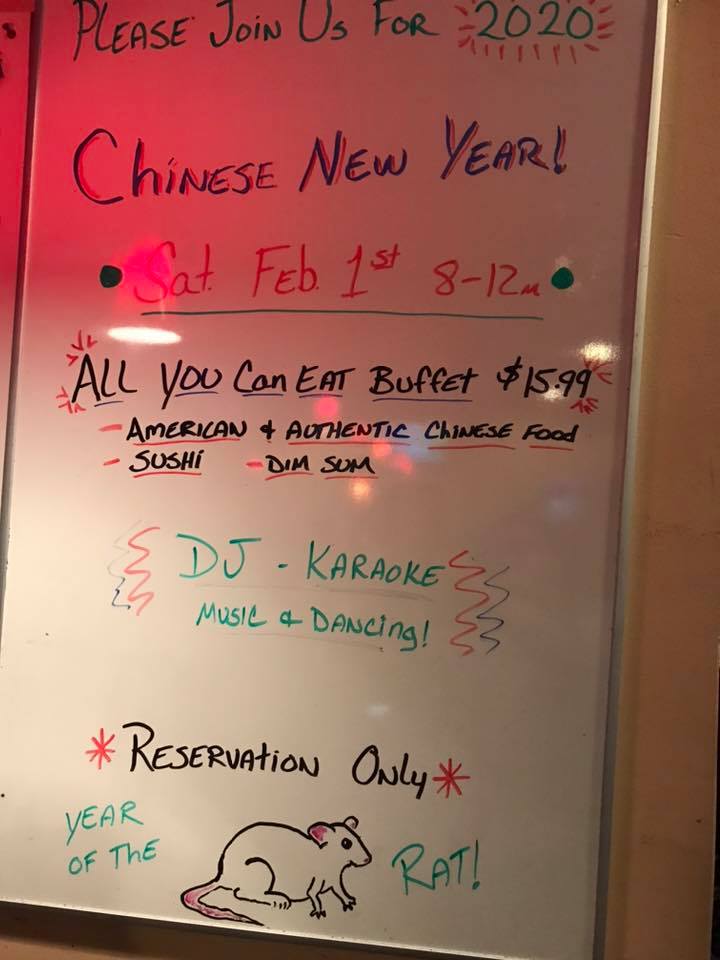 Please Join Us For 2020
Chinese New Year!
Sat. Feb. 1st 8-12m
All You Can Eat Buffet $15.99
- American & Authentic Chinese Food
- Sushi - Dim Sum
DJ - Karaoke
Music & Dancing!
*Reservation Only*
Year
of the Rat!